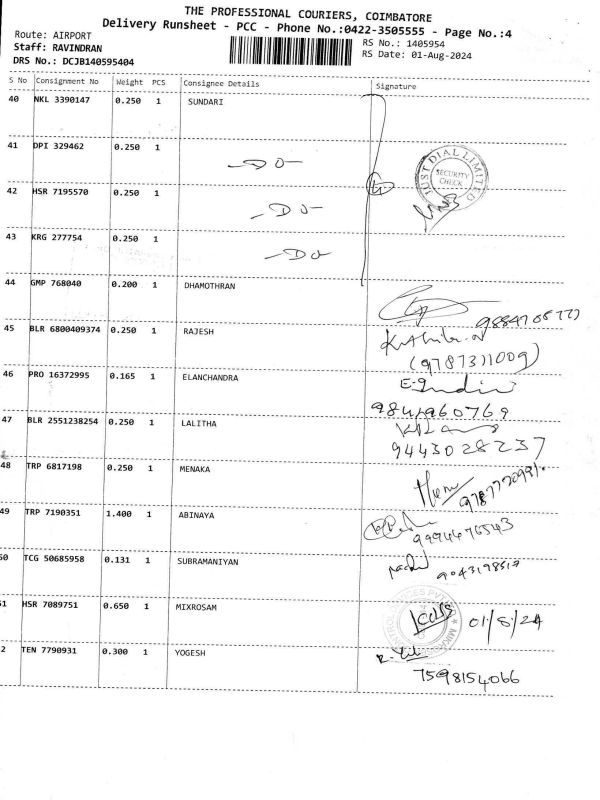 THE PROFESSIONAL COURIERS, COIMBATORE
Delivery Runsheet - PCC - Phone No.:0422-3505555 - Page No.:4
Route: AIRPORT
RS No.: 1405954
Staff: RAVINDRAN
RS Date: 01-Aug-2024
DRS No.: DCJB140595404
S No Consignment No Weight PCS Consignee Details Signature
40 NKL 3390147 0.250 1 SUNDARI
41 DPI 329462 0.250 1 -DO-
JUST DIAL LIMITED
SECURITY CHECK
42 HSR 7195570 0.250 1 -DO-
43 KRG 277754 0.250 1 -DO-
44 GMP 768040 0.200 1 DHAMOTHRAN
45 BLR 6800409374 0.250 1 RAJESH
(9787311009)
46 PRO 16372995 0.165 1 ELANCHANDRA
9841960769
47 BLR 2551238254 0.250 1 LALITHA
9443028237
48 TRP 6817198 0.250 1 MENAKA
49 TRP 7190351 1.400 1 ABINAYA
9994676543
50 TCG 50685958 0.131 1 SUBRAMANIYAN
51 HSR 7089751 0.650 1 MIXROSAM
01/8/24
2 TEN 7790931 0.300 1 YOGESH
7598154066